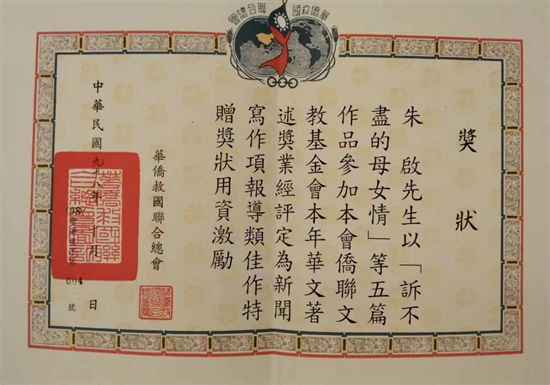 華僑救國聯合總會
獎狀
朱 啟先生以「訴不
盡的母女情」等五篇
作品參加本會僑聯文
教基金會本年華文著
述獎業經評定為新聞
寫作項報導類佳作特
贈獎狀用資激勵
華僑救國聯合總會
中華民國九十八年十月 日
號